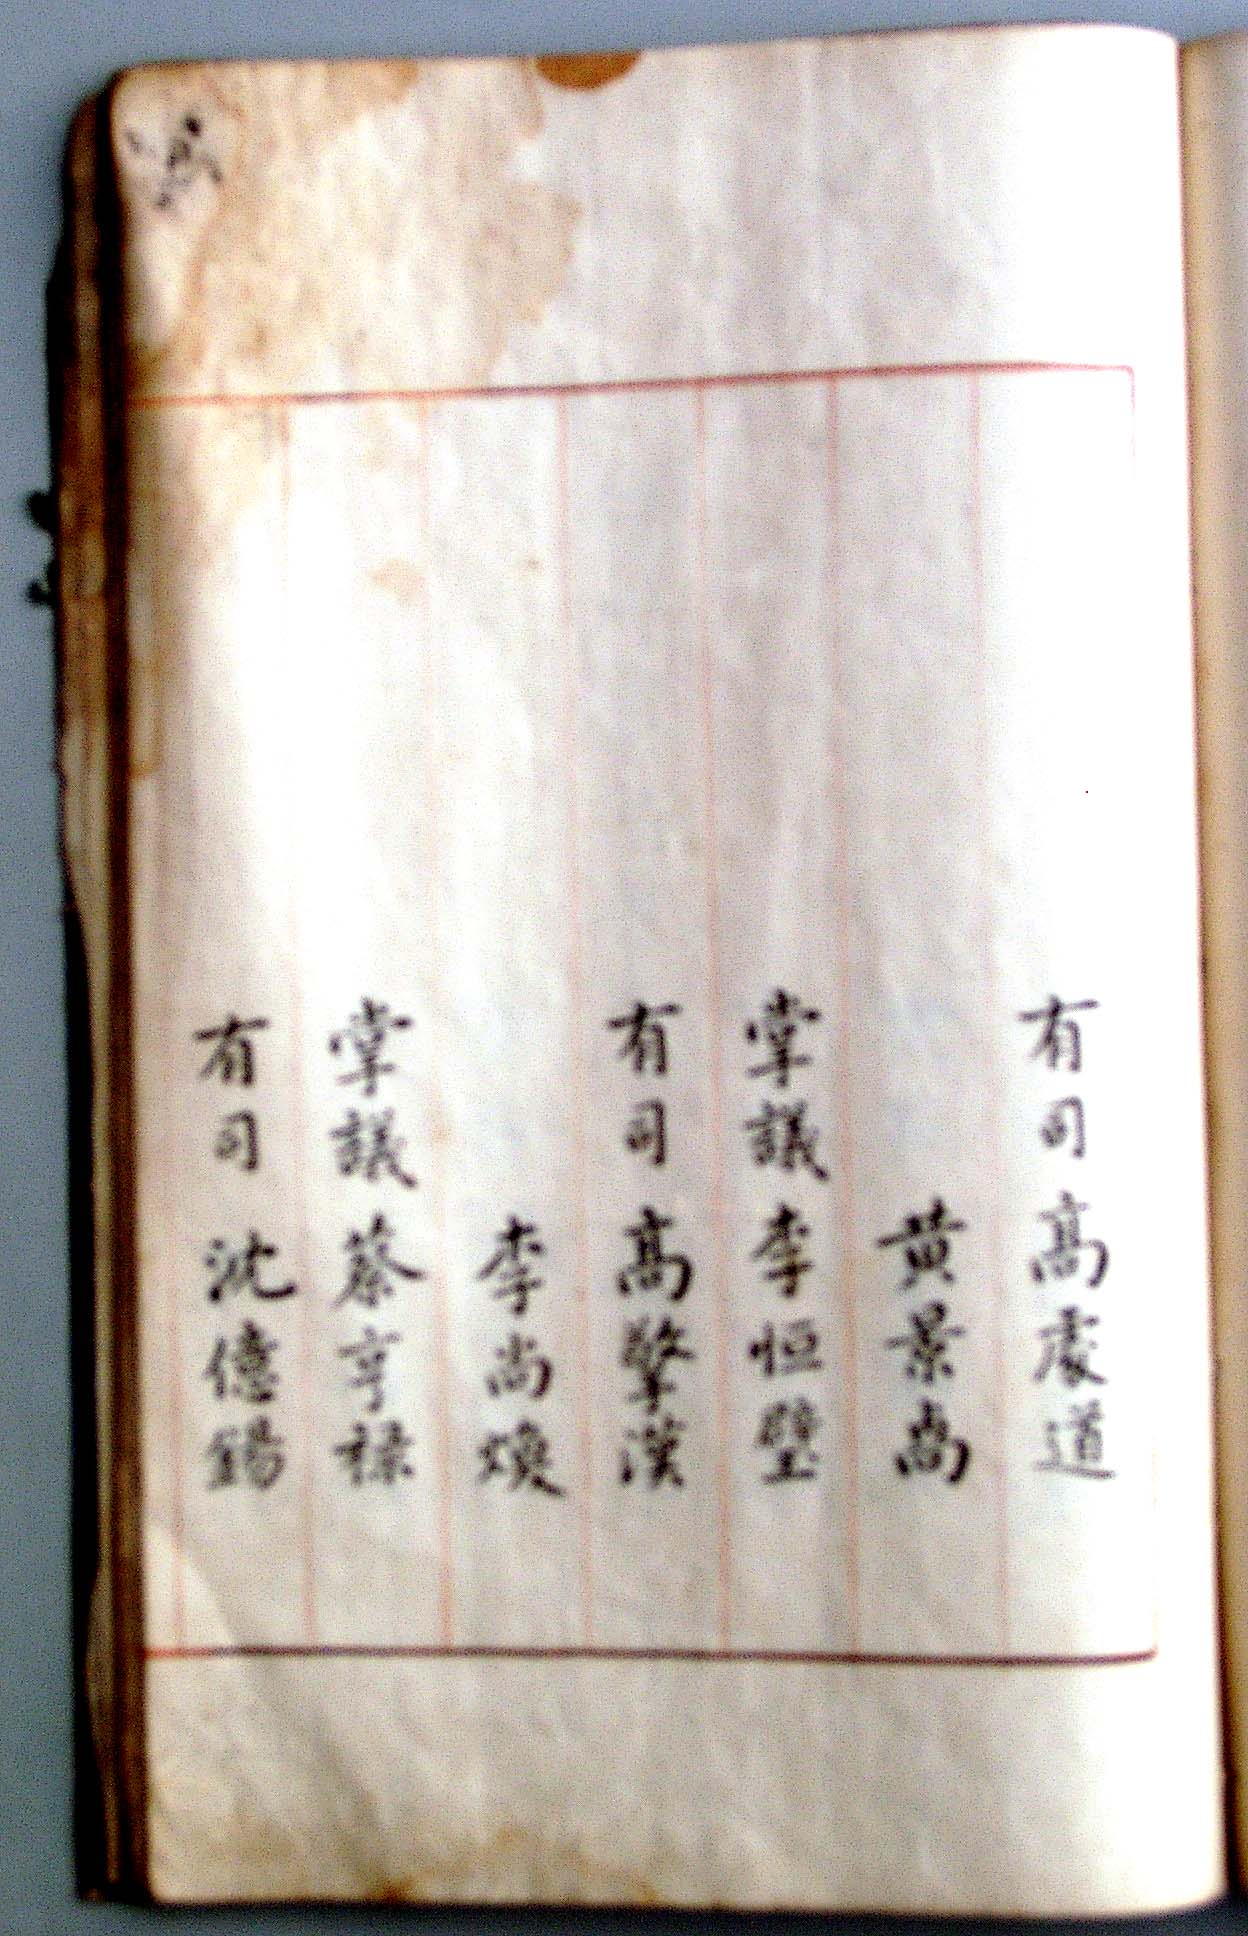 有司 高處道
黃景禼
掌議 李恒璧
有司 高擎漢
李尚煥
掌議 蔡亨祿
有司 沈億錫